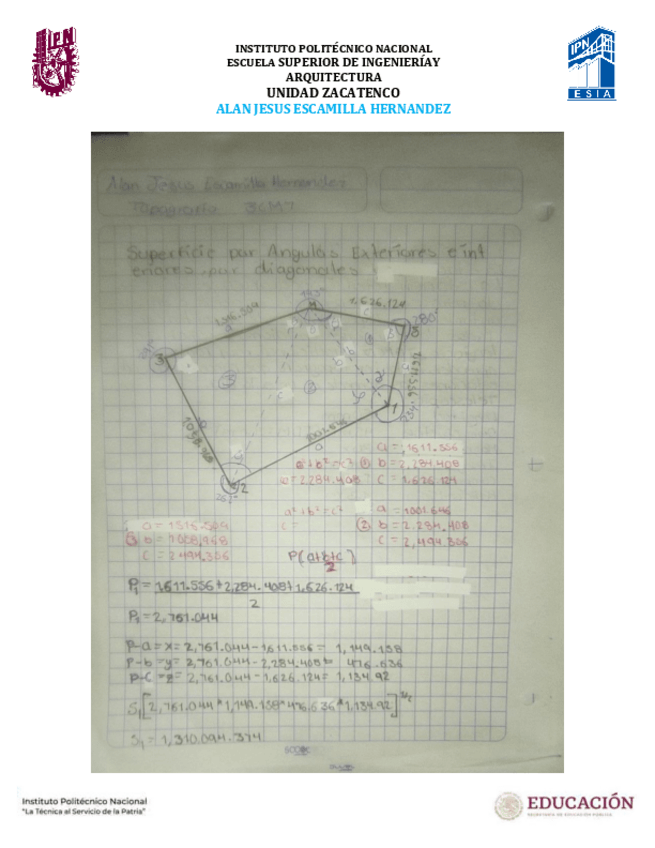 INSTITUTO POLITÉCNICO NACIONAL
ESCUELA SUPERIOR DE INGENIERÍAY
ARQUITECTURA
UNIDAD ZACATENCO
ALAN JESUS ESCAMILLA HERNANDEZ
IPN
IPN
ESIA
Alan Jesus Escamilla Hernandez
Topografia 3CM7
Superficie por Angulos Exteriores e int
eriores por diagonales
1,626.124
280°
3
2
1
1001.646
a = 1,611.556
a² + b² = c² ① b = 2,284.408
c = 1,626.124
a² + b² = c²
c =
a = 1001.646
② b = 2,284.408
c = 2,494.306
③ b = 1,008.968
c = 2,494.306
P(a+b+c)
2
P₁ = 1,611.556 + 2,284.408 + 1,626.124
2
P₁ = 2,761.044
P-a = x = 2,761.044 - 1,611.556 = 1,149.158
P-b = y = 2,761.044 - 2,284.408 = 476.636
P-c = z = 2,761.044 - 1,626.124 = 1,134.92
S₁[2,761.044 * 1,149.158 * 476.636 * 1,134.92]
S₁ = 1,310,094.374
Instituto Politécnico Nacional
"La Técnica al Servicio de la Patria"
EDUCACIÓN
SECRETARÍA DE EDUCACIÓN PÚBLICA